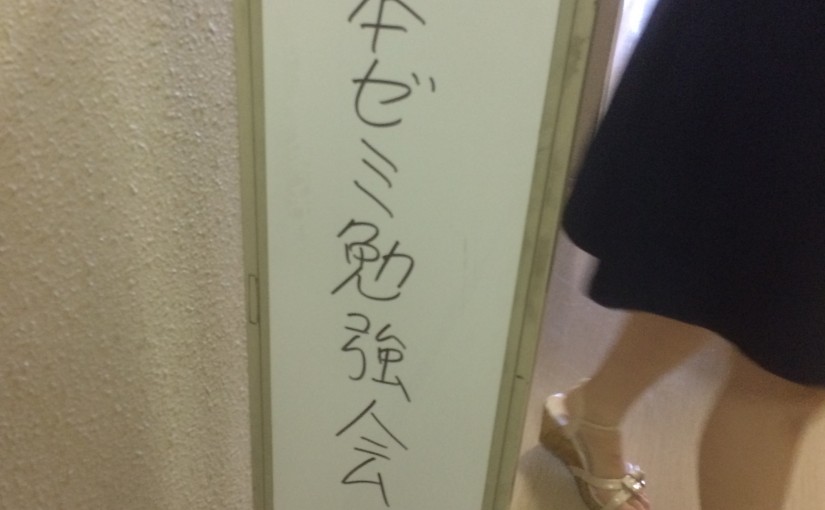 本ゼミ勉強会